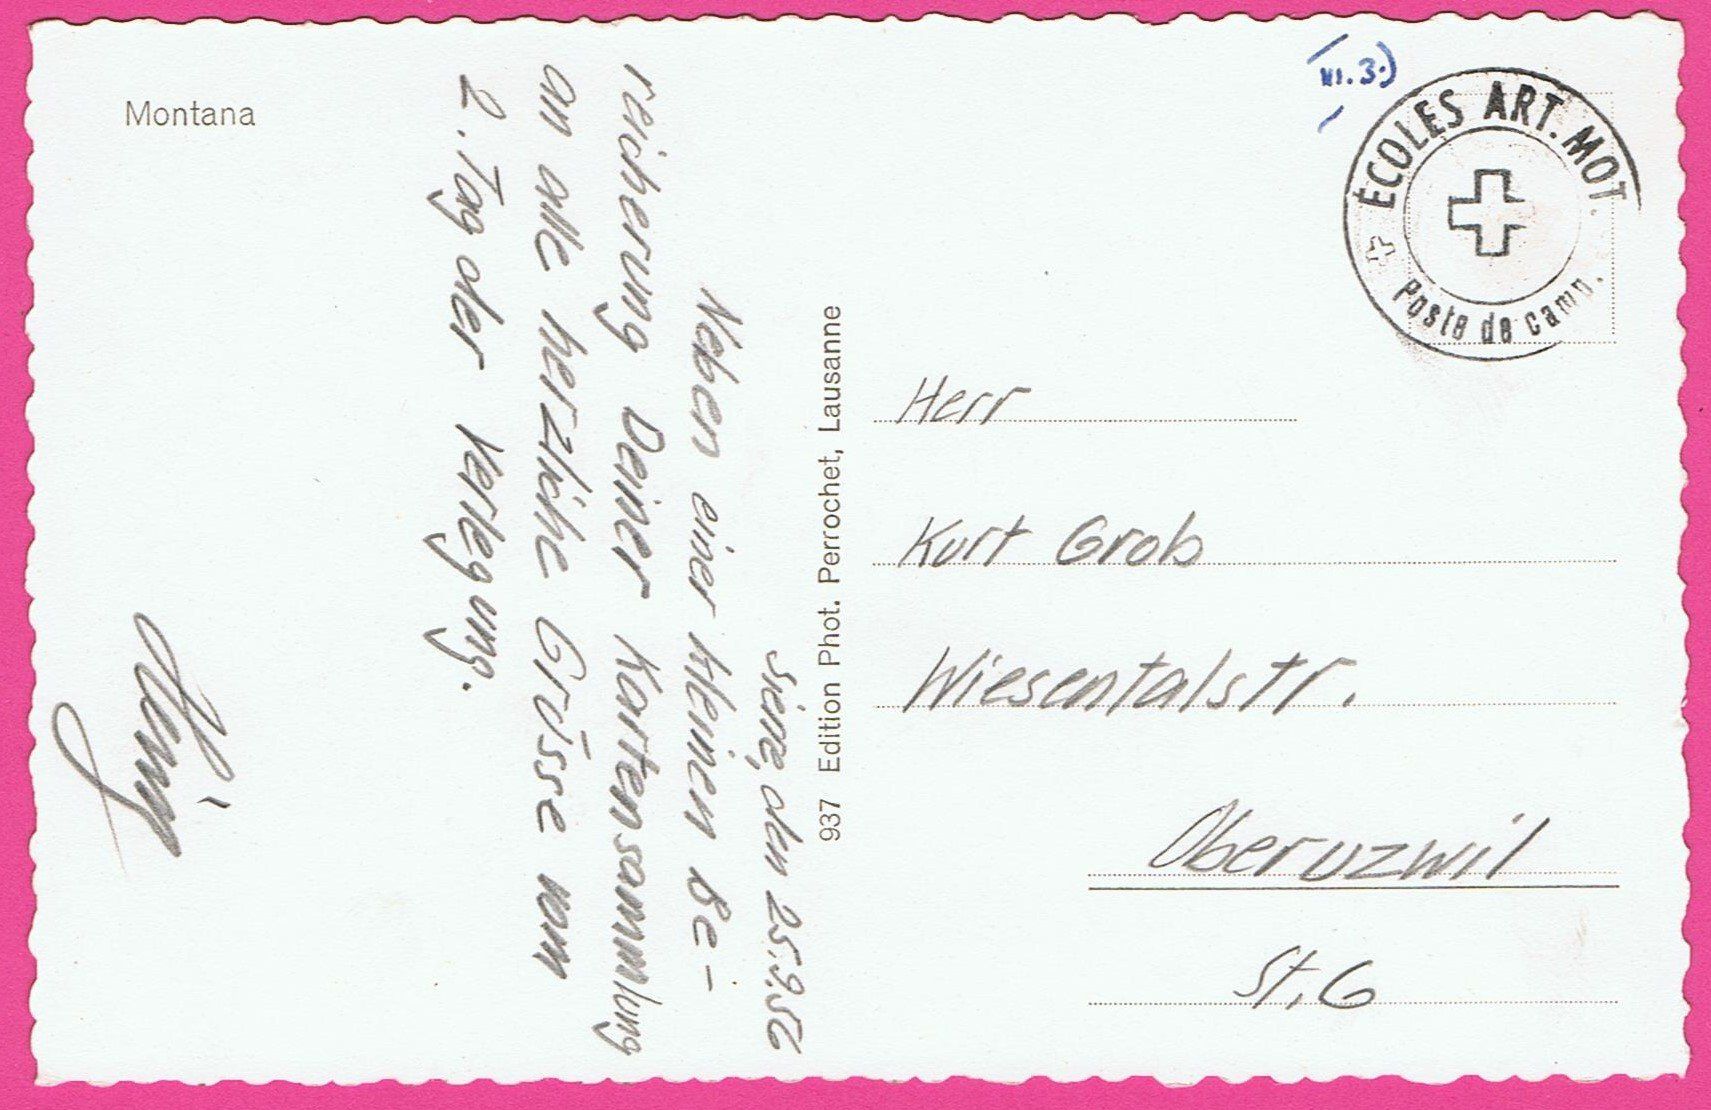 Montana
VI.3.)
ECOLES ART. MOT.
Poste de camp.
Sierre, den 25.9.56
Neben einer kleinen Be-
reicherung Deiner Kartensammlung
an alle herzliche Grüsse vom
2. Tag der Verlegung.
937 Edition Phot. Perrochet, Lausanne
Herr
Kurt Grob
Wiesentalstr.
Oberuzwil
St. G